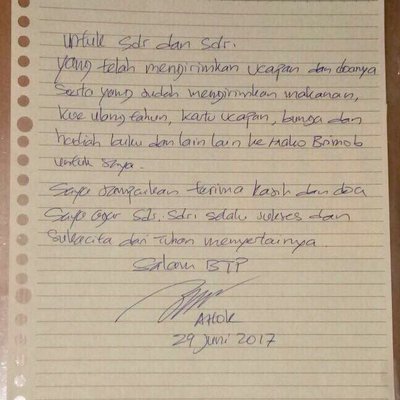 untuk sdr dan sdri.
yang telah mengirimkan ucapan dan doanya
Serta yang sudah mengirimkan makanan,
kue ulang tahun, kartu ucapan, bunga dan
hadiah buku dan lain lain ke Mako Brimob
untuk saya.
Saya sampaikan terima kasih dan doa
Saya agar sdr. sdri selalu sukses dan
Sukacita dan Tuhan menyertainya.
Salam BTP
AHOK
29 Juni 2017